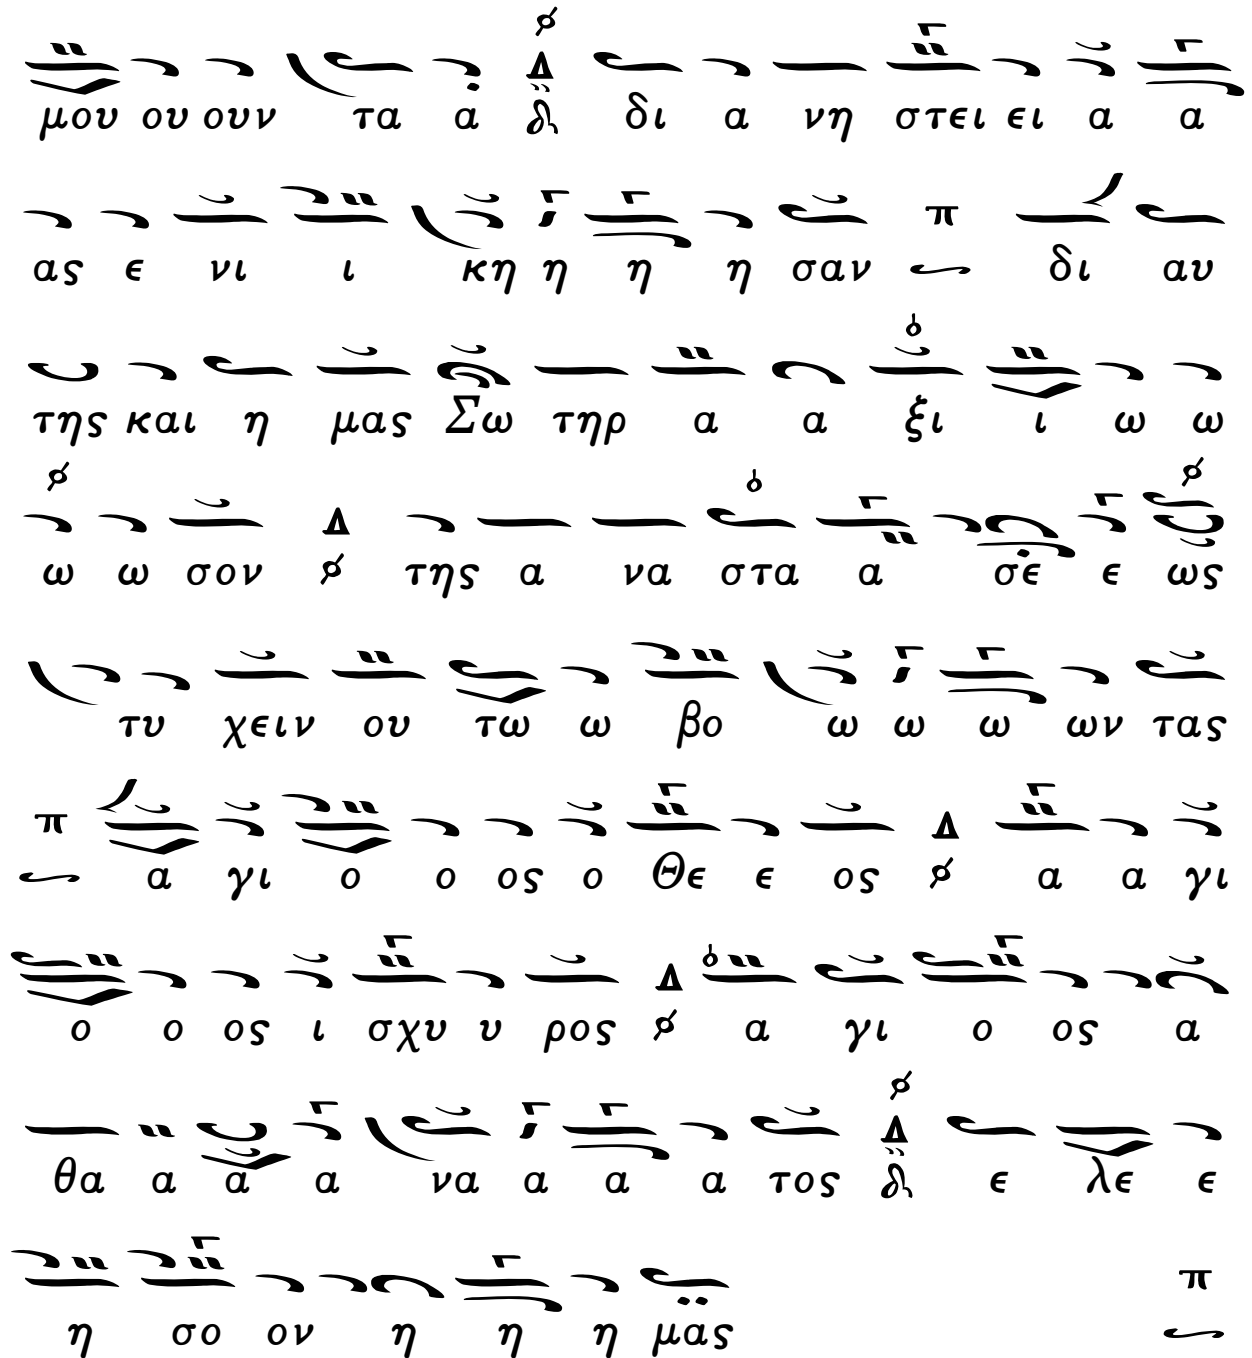 μου ου ουν τα α δι α νη στει ει α α
ας ε νι ι κη η η η σαν π δι αυ
της και η μας Σω τηρ α α ξι ι ω ω
ω ω σον Δ της α να στα α σε ε ως
τυ χειν ου τω ω βο ω ω ω ων τας
π α γι ο ο ος ο Θε ε ος Δ α α γι
ο ο ος ι σχυ υ ρος Δ α γι ο ος α
θα α α α να α α α τος Δ ε λε ε
η σο ον η η η μας π